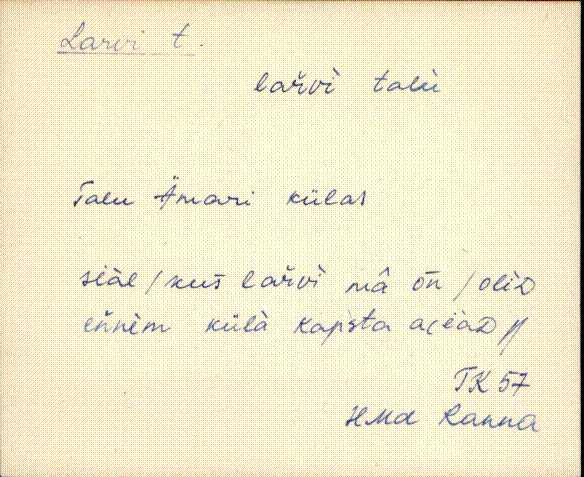 Larvi t.
lařvi talu
Talu Ämari külas
siäl /kus lařvi mā on/ oliD
ennem külä kapsta aeaD //
TK 57
HMd Ranna